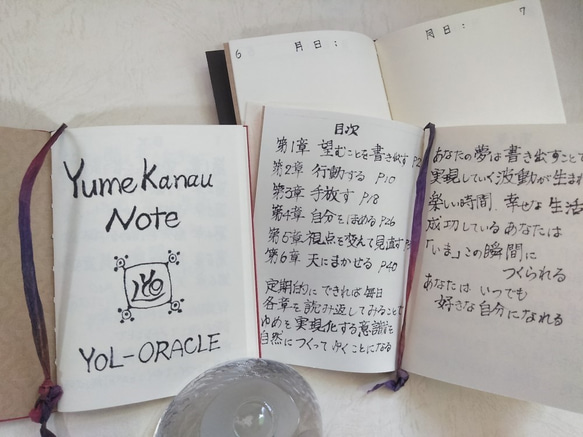 6
月 日 :
月 日 :
7
Yume Kanau
Note
YOL-ORACLE
目次
第1章 望むことを書き出す P2
第2章 行動する P10
第3章 手放す P18
第4章 自分をほめる P26
第5章 視点を変えて見直す
第6章 天にまかせる P40
定期的に できれば 毎日
各章を読み返してみることで
ゆめを実現化する意識を
自然につくってゆくことになる
あなたの夢は書き出すことで
実現していく波動が生まれ
楽しい時間、幸せな生活
成功しているあなたは
「いま」この瞬間に
つくられる
あなたは いつでも
好きな自分になれる